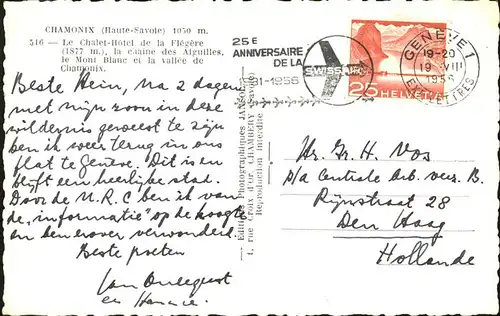 CHAMONIX (Haute-Savoie) 1050 m.
516 — Le Chalet-Hôtel de la Flégère
(1877 m.), la chaîne des Aiguilles,
le Mont Blanc et la vallée de
Chamonix.
25E
ANNIVERSAIRE
DE LA
SWISSAIR
1931-1956
GENÈVE 1
19-20
19.VIII
1956
EXP. LETTRES
25 HELVETIA
Beste Hein, na 2 dagen
met mijn zoon in deze
wildernis geweest te zijn
ben ik weer terug in ons
flat te Genève. Dit is en
blijft een heerlijke stad.
Door de N.R.C ben ik van
de „informatie" op de hoogte
en den erover verwonderd.
Beste groeten
Jan
en
Editions Photographiques
4, rue Croix d'Or, CHAMBÉRY (Savoie)
Reproduction interdite
Hr. Gr. H. Vos
p/a Centrale Arb. verz. B.
Rijnstraat 28
Den Haag
Hollande